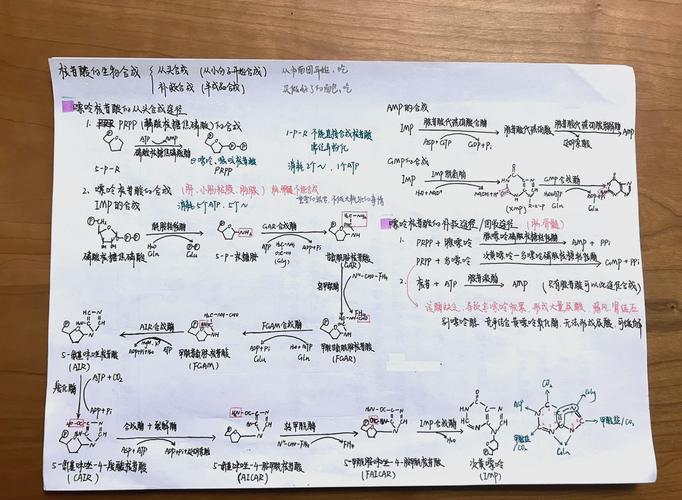 核苷酸的生物合成
从头合成 (从小分子开始合成)
补救合成 (半成品合成)
嘌呤核苷酸的从头合成途径
1. PRPP (磷酸核糖焦磷酸) 的合成
ATP AMP
磷酸核糖焦磷酸酶
5-P-R
PRPP
1-P-R 不能直接合成核苷酸
消耗2个~, 1个ATP
2. 嘌呤核苷酸的合成 (肝、小肠粘膜、胸腺)
IMP的合成
消耗5个ATP, 5个~
酰胺转移酶
H₂O
Gln
Glu
磷酸核糖焦磷酸
5-P-核糖胺
GAR合成酶
ATP
(Gly)
ADP+Pi
甘氨酰胺核苷酸
(GAR)
转甲酰酶
N¹⁰-CHO-FH₄
FH₄
甲酰甘氨酰胺核苷酸
(FGAR)
FGAM合成酶
ADP+Pi
Glu
H₂O+ATP
Gln
甲酰甘氨脒核苷酸
(FGAM)
AIR合成酶
5-氨基咪唑核苷酸
(AIR)
羧化酶
ATP+CO₂
ADP+Pi
5-氨基咪唑-4-羧酸核苷酸
(CAIR)
合成酶+裂解酶
Asp+ATP
ADP+Pi+延胡索酸
5-氨基咪唑-4-甲酰胺核苷酸
(AICAR)
转甲酰酶
N¹⁰-CHO-FH₄
FH₄
5-甲酰胺咪唑-4-甲酰胺核苷酸
(FAICAR)
IMP合成酶
H₂O
次黄嘌呤
(IMP)
AMP的合成
IMP
腺苷酸代琥珀酸合酶
Asp+GTP
GDP+Pi
腺苷酸代琥珀酸
腺苷酸代琥珀酸裂解酶
AMP
延胡索酸
GMP的合成
IMP
IMP脱氢酶
H₂O+NAD⁺
NADH+H⁺
(XMP)
R-5-P
GMP合成酶
H₂O+ATP
Gln
Glu
嘌呤核苷酸的补救途径/回收途径 (脑、骨髓)
1. PRPP + 腺嘌呤
腺嘌呤磷酸核糖转移酶
AMP + PPi
PRPP + 鸟嘌呤
次黄嘌呤-鸟嘌呤磷酸核糖转移酶
GMP + PPi
2. 腺苷 + ATP
腺苷激酶
AMP
(只有腺苷酸可以从这里合成)
CO₂
Gly
Asp
甲酰基/CO₂
甲酰基/CO₂
Gln